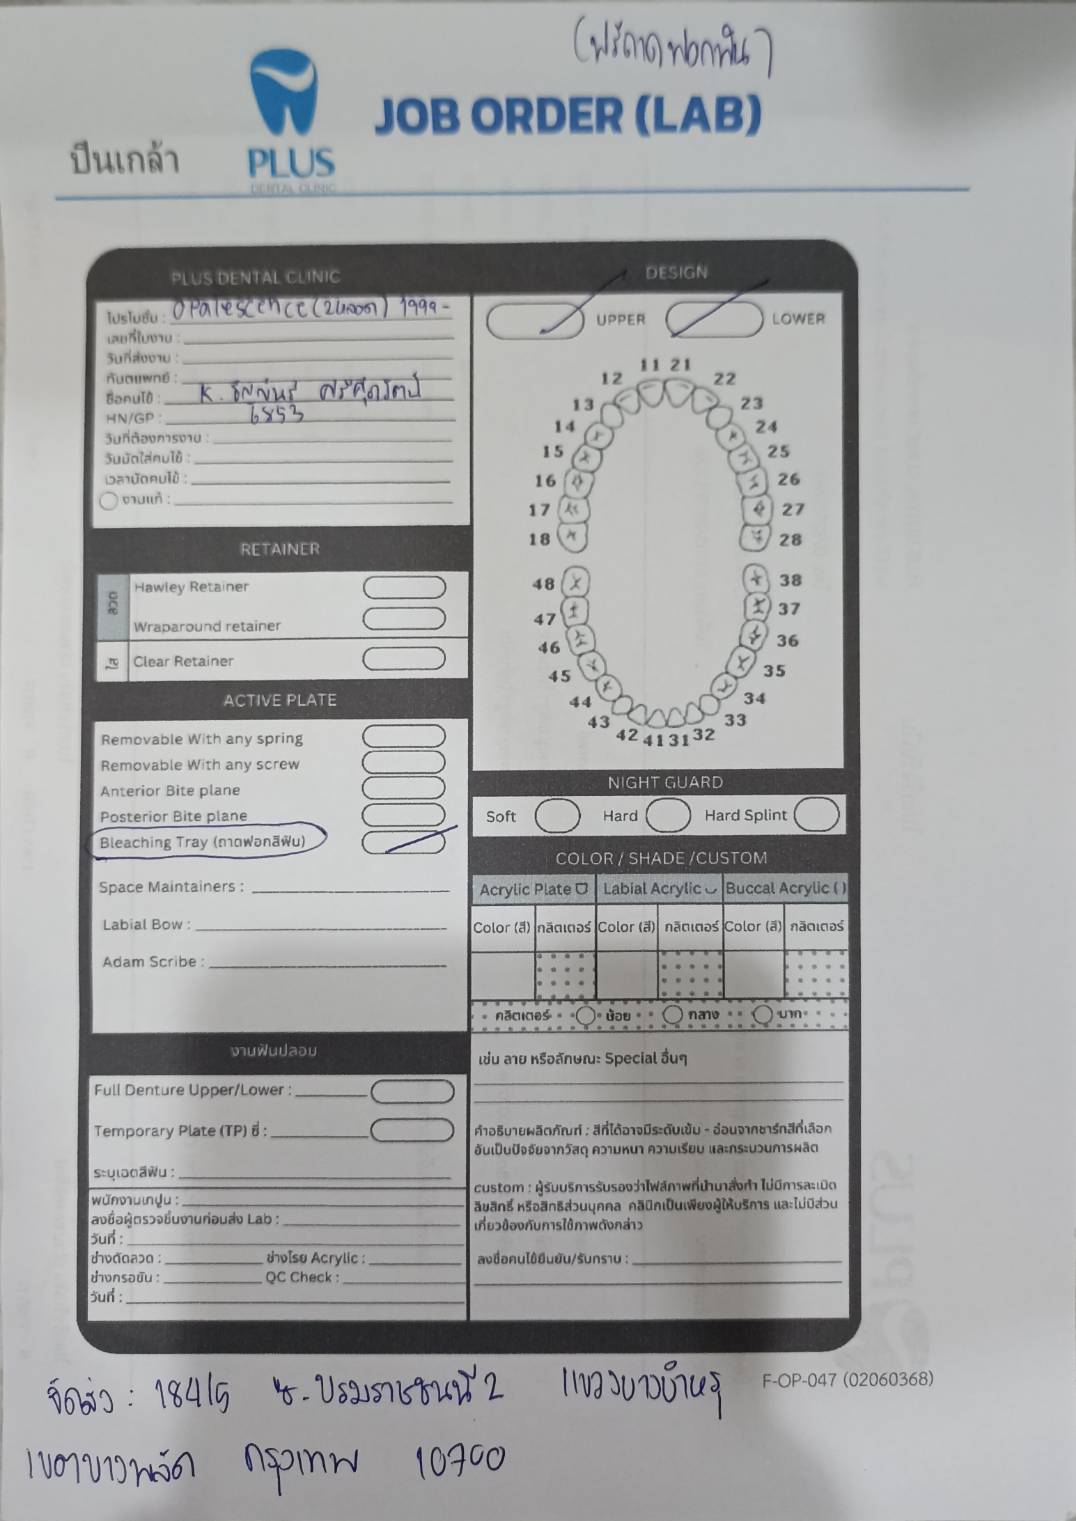 (ฟรีถาดฟอกฟัน)
JOB ORDER (LAB)
ปิ่นเกล้า
PLUS
DENTAL CLINIC
PLUS DENTAL CLINIC
โปรโมชั่น : Opalescence (2หลอด) 1999-
เลขที่ใบงาน :
วันที่ส่งงาน :
ทันตแพทย์ :
ชื่อคนไข้ : K.
HN/GP : 6853
วันที่ต้องการงาน :
วันนัดใส่คนไข้ :
เวลานัดคนไข้ :
งานแก้ :
RETAINER
ลวด
Hawley Retainer
Wraparound retainer
ใส
Clear Retainer
ACTIVE PLATE
Removable With any spring
Removable With any screw
Anterior Bite plane
Posterior Bite plane
Bleaching Tray (ถาดฟอกสีฟัน)
Space Maintainers :
Labial Bow :
Adam Scribe :
งานฟันปลอม
Full Denture Upper/Lower :
Temporary Plate (TP) ซี่ :
ระบุเฉดสีฟัน :
พนักงานเกญน :
ลงชื่อผู้ตรวจชิ้นงานก่อนส่ง Lab :
วันที่ :
ช่างดัดลวด : ช่างโรย Acrylic :
ช่างกรอขัน : QC Check :
วันที่ :
DESIGN
UPPER LOWER
11 21
12 22
13 23
14 24
15 25
16 26
17 27
18 28
48 38
47 37
46 36
45 35
44 34
43 33
42 41 31 32
NIGHT GUARD
Soft Hard Hard Splint
COLOR / SHADE /CUSTOM
Acrylic Plate Labial Acrylic Buccal Acrylic ( )
Color (สี) กลิตเตอร์ Color (สี) กลิตเตอร์ Color (สี) กลิตเตอร์
กลิตเตอร์ น้อย กลาง มาก
เช่น ลาย หรือลักษณะ Special อื่นๆ
คำอธิบายผลิตภัณฑ์ : สีที่ได้อาจมีระดับเข้ม - อ่อนจากชาร์ทสีที่เลือก
อันเป็นปัจจัยจากวัสดุ ความหนา ความเรียบ และกระบวนการผลิต
custom : ผู้รับบริการรับรองว่าไฟล์ภาพที่นำมาสั่งทำ ไม่มีการละเมิด
ลิขสิทธิ์ หรือสิทธิส่วนบุคคล คลินิกเป็นเพียงผู้ให้บริการ และไม่มีส่วน
เกี่ยวข้องกับการใช้ภาพดังกล่าว
ลงชื่อคนไข้ยืนยัน/รับทราบ :
F-OP-047 (02060368)
จัดส่ง : 184/5 ซ. บรมราชชนนี 2 แขวงบางบำหรุ
เขตบางพลัด กรุงเทพ 10700